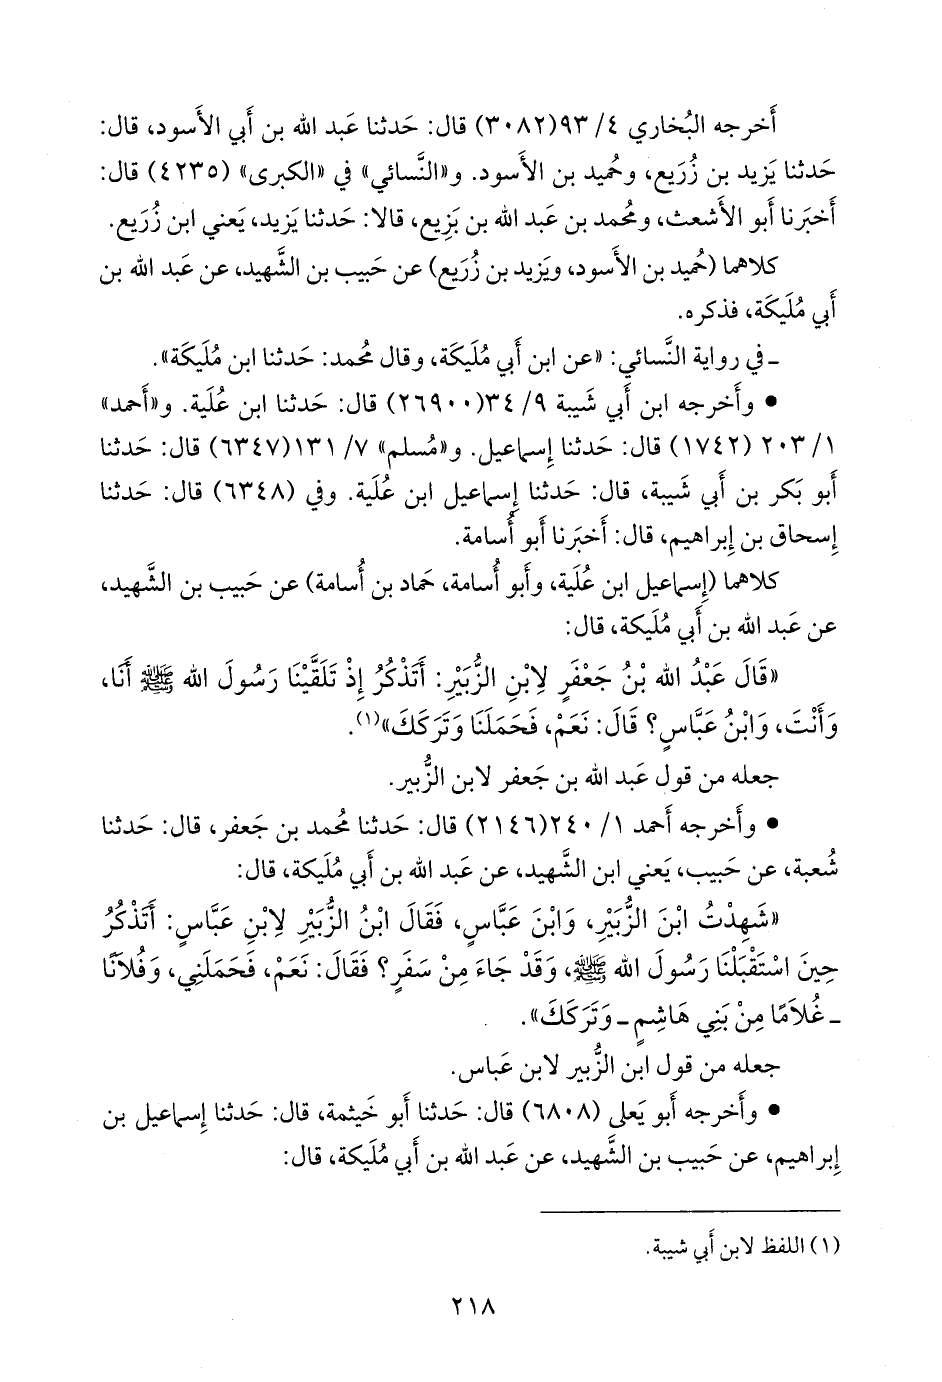 أَخرجه البُخاري ٤/ ٩٣(٣٠٨٢) قال: حَدثنا عَبد الله بن أَبي الأَسود، قال:
حَدثنا يَزيد بن زُرَيع، وحُميد بن الأَسود. و«النَّسائي» في «الكبرى» (٤٢٣٥) قال:
أَخبَرنا أَبو الأَشعث، ومُحمد بن عَبد الله بن بَزِيع، قالا: حَدثنا يَزيد، يَعني ابن زُرَيع.
كلاهما (حُميد بن الأَسود، ويَزيد بن زُرَيع) عن حَبيب بن الشَّهيد، عن عَبد الله بن
أَبي مُلَيكَة، فذكره.
ـ في رواية النَّسائي: «عن ابن أَبي مُلَيكَة، وقال مُحمد: حَدثنا ابن مُلَيكَة».
• وأَخرجه ابن أَبي شَيبة ٩/ ٣٤(٢٦٩٠٠) قال: حَدثنا ابن عُلَية. و«أَحمد»
١/ ٢٠٣ (١٧٤٢) قال: حَدثنا إِسماعيل. و«مُسلم» ٧/ ١٣١(٦٣٤٧) قال: حَدثنا
أَبو بَكر بن أَبي شَيبة، قال: حَدثنا إِسماعيل ابن عُلَية. وفي (٦٣٤٨) قال: حَدثنا
إِسحاق بن إِبراهيم، قال: أَخبَرنا أَبو أُسامة.
كلاهما (إِسماعيل ابن عُلَية، وأَبو أُسامة، حَماد بن أُسامة) عن حَبيب بن الشَّهيد،
عن عَبد الله بن أَبي مُلَيكة، قال:
«قَالَ عَبْدُ الله بْنُ جَعْفَرٍ لِابْنِ الزُّبَيْرِ: أَتَذْكُرُ إِذْ تَلَقَّيْنَا رَسُولَ الله ﷺ أَنَا،
وَأَنْتَ، وَابْنُ عَبَّاسٍ؟ قَالَ: نَعَمْ، فَحَمَلَنَا وَتَرَكَكَ»(١).
جعله من قول عَبد الله بن جَعفر لابن الزُّبير.
• وأَخرجه أَحمد ١/ ٢٤٠(٢١٤٦) قال: حَدثنا مُحمد بن جَعفر، قال: حَدثنا
شُعبة، عن حَبيب، يَعني ابن الشَّهيد، عن عَبد الله بن أَبي مُلَيكة، قال:
«شَهِدْتُ ابْنَ الزُّبَيْرِ، وَابْنَ عَبَّاسٍ، فَقَالَ ابْنُ الزُّبَيْرِ لِابْنِ عَبَّاسٍ: أَتَذْكُرُ
حِينَ اسْتَقْبَلْنَا رَسُولَ الله ﷺ، وَقَدْ جَاءَ مِنْ سَفَرٍ؟ فَقَالَ: نَعَمْ، فَحَمَلَنِي، وَفُلَانًا
ـ غُلَامًا مِنْ بَنِي هَاشِمٍ ـ وَتَرَكَكَ».
جعله من قول ابن الزُّبير لابن عَباس.
• وأَخرجه أَبو يَعلى (٦٨٠٨) قال: حَدثنا أَبو خَيثمة، قال: حَدثنا إِسماعيل بن
إِبراهيم، عن حَبيب بن الشَّهيد، عن عَبد الله بن أَبي مُلَيكة، قال:
(١) اللفظ لابن أَبي شيبة.
٢١٨